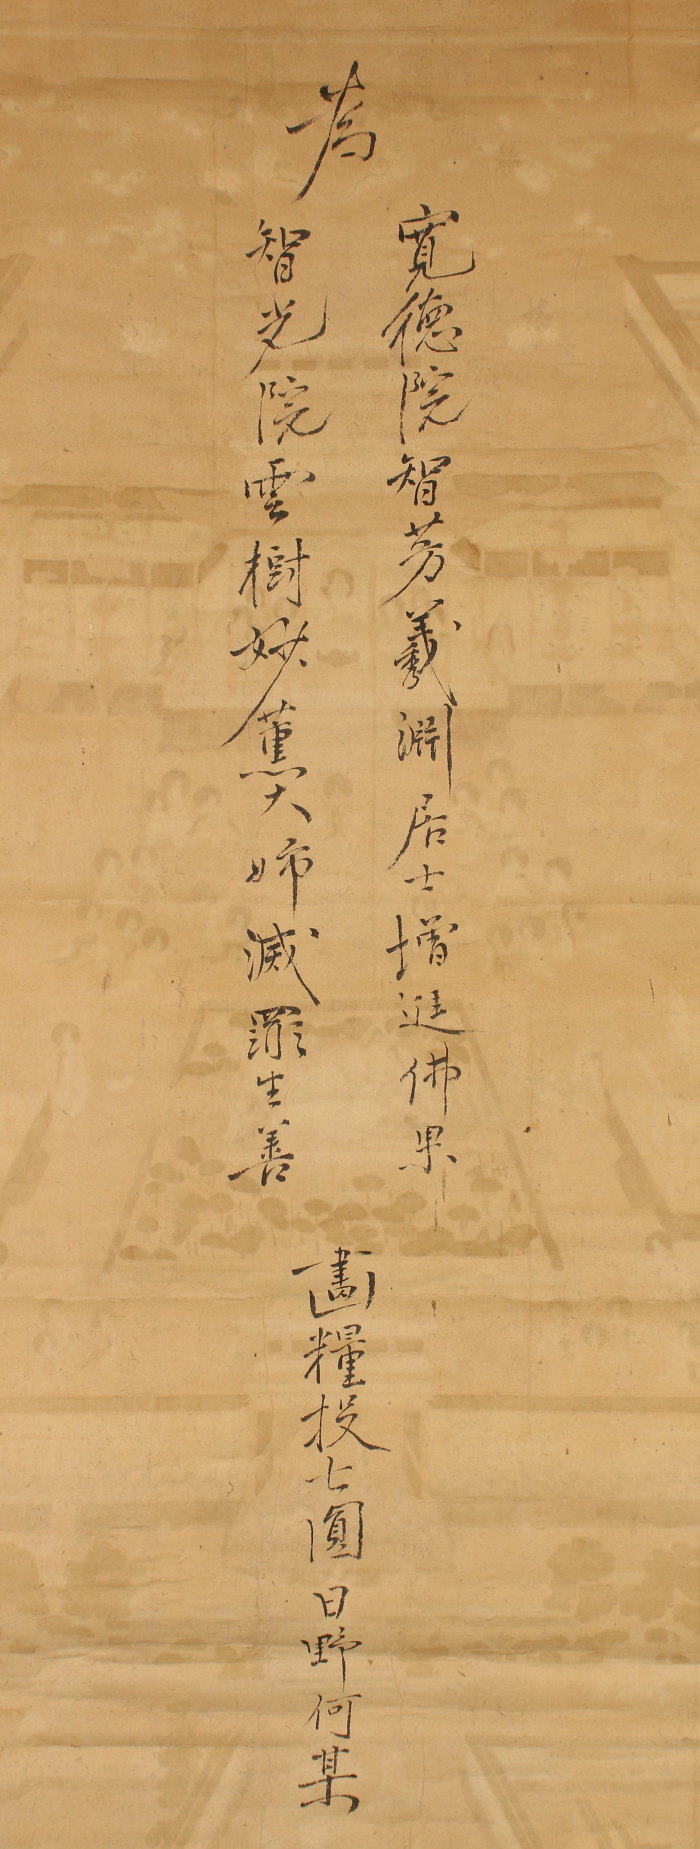 為
寛德院智芳義淵居士增進佛果
智光院雲樹妙薫大姉滅罪生善
畵糧投七圓日野何某